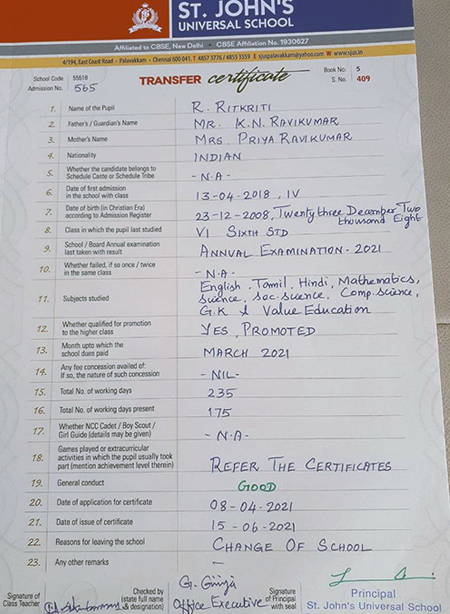 ST. JOHN'S
UNIVERSAL SCHOOL
Affiliated to CBSE, New Delhi CBSE Affiliation No. 1930627
4/194, East Coast Road - Palavakkam - Chennai 600 041. T 4857 3776 / 4855 3559 E sjuspalavakkam@yahoo.com W www.sjus.in
School Code 55618
Book No. 5
Admission No. 565
TRANSFER certificate
S. No. 409
1. Name of the Pupil R. RITKRITI
2. Father's / Guardian's Name MR. K.N. RAVIKUMAR
3. Mother's Name MRS. PRIYA RAVIKUMAR
4. Nationality INDIAN
5. Whether the candidate belongs to
Schedule Caste or Schedule Tribe - N.A -
6. Date of first admission
in the school with class 13-04-2018, IV
7. Date of birth (in Christian Era)
according to Admission Register 23-12-2008, Twenty three December Two
thousand Eight
8. Class in which the pupil studied VI SIXTH STD
9. School / Board Annual examination
last taken with result ANNUAL EXAMINATION - 2021
10. Whether failed, if so once / twice
in the same class - N.A -
11. Subjects studied English, Tamil, Hindi, Mathematics,
Science, Soc. science, Comp. Science,
G.K & Value Education
12. Whether qualified for promotion
to the higher class YES, PROMOTED
13. Month upto which the
school dues paid MARCH 2021
14. Any fee concession availed of:
If so, the nature of such concession - NIL -
15. Total No. of working days 235
16. Total No. of working days present 175
17. Whether NCC Cadet / Boy Scout /
Girl Guide (details may be given) - N.A -
18. Games played or extracurricular
activities in which the pupil usually took
part (mention achievement level therein) REFER THE CERTIFICATES
19. General conduct GOOD
20. Date of application for certificate 08-04-2021
21. Date of issue of certificate 15-06-2021
22. Reasons for leaving the school CHANGE OF SCHOOL
23. Any other remarks -
Signature of
Class Teacher
Checked by
(state full name
& designation)
G. Girija
Office Executive
Signature
of Principal
with seal
Principal
St. John's Universal School